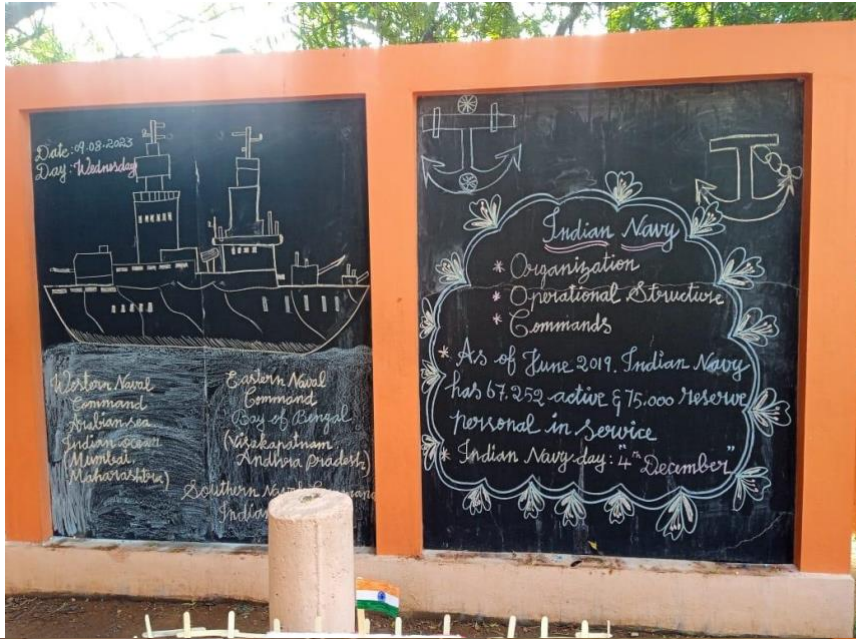 Date: 09.08.2023
Day: Wednesday
Western Naval
Command
Arabian sea
Indian ocean
(Mumbai
Maharashtra)
Eastern Naval
Command
Bay of Bengal
(Visakapatnam
Andhra pradesh)
Southern Naval Command
Indian
Indian Navy
* Organization
* Operational Structure
* Commands
* As of June 2019. Indian Navy
has 67.252 active & 75.000 reserve
personal in service
* Indian Navy day: "4th December"